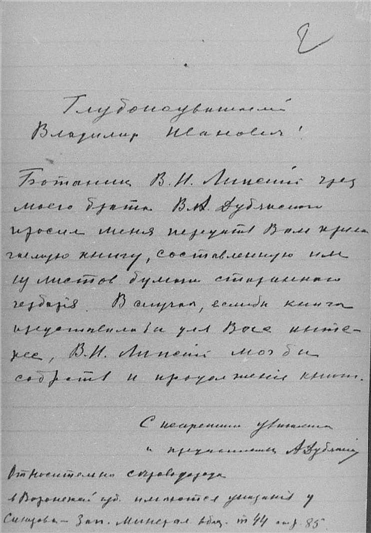 2
Глубокоуважаемый
Владимир Иванович!
Ботаник В.И. Липский чрез
моего брата В.А. Дубянского
просил меня передать Вам прила
гаемую книгу, составленную им
из листов бумаги старинного
гербария. В случае, если бы книга
представила бы для Вас инте-
рес, В.И. Липский мог бы
собрать и продолжение книги.
С искренним уважением
и преданностью А Дубянский
Относительно сероводорода
в Воронежской губ. имеются указания у
Зап. Минерал. общ. т 44 стр. 85.